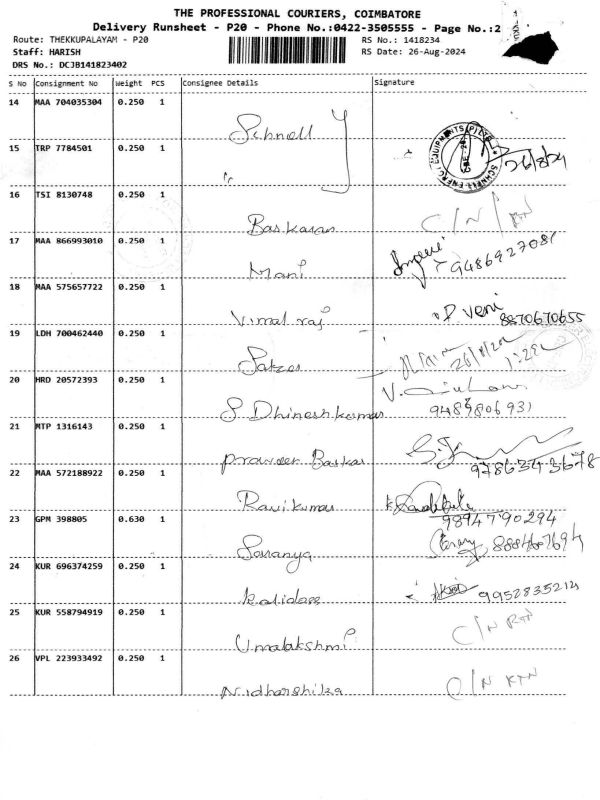 THE PROFESSIONAL COURIERS, COIMBATORE
Delivery Runsheet - P20 - Phone No.:0422-3505555 - Page No.:2
Route: THEKKUPALAYAM - P20
RS No.: 1418234
Staff: HARISH
RS Date: 26-Aug-2024
DRS No.: DCJB141823402
S No Consignment No Weight PCS Consignee Details Signature
14 MAA 704035304 0.250 1 Schnell
15 TRP 7784501 0.250 1 26/8/24
16 TSI 8130748 0.250 1 Baskaran C/N/
17 MAA 866993010 0.250 1 Mani 9486927081
18 MAA 575657722 0.250 1 Vimal raj D. Veni 8870670655
19 LDH 700462440 0.250 1
20 HRD 20572393 0.250 1 S Dhineshkumar 9489806931
21 MTP 1316143 0.250 1 Praveen Baskar 9786343678
22 MAA 572188922 0.250 1 Ravikumar 9894790294
23 GPM 398805 0.630 1 Saranya
24 KUR 696374259 0.250 1 Kalidass 9952835214
25 KUR 558794919 0.250 1 Umalakshmi C/N
26 VPL 223933492 0.250 1 Nidharshika C/N